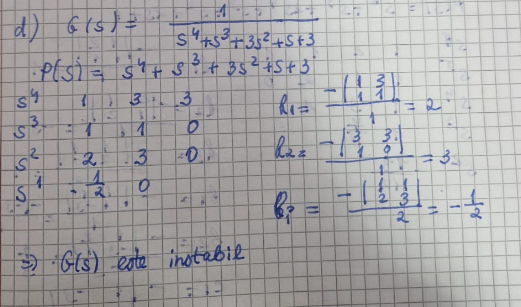 d) G(s) = 1 / s⁴+s³+3s²+s+3
P(s) = s⁴ + s³ + 3s² + s + 3
s⁴ 1 3 3
s³ 1 1 0
s² 2 3 0
s¹ -1/2 0
b₁ = -|1 3; 1 1| / 1 = 2
b₂ = -|3 3; 1 0| / 1 = 3
b₁ = -|1 1; 2 3| / 2 = -1/2
=> G(s) este instabil